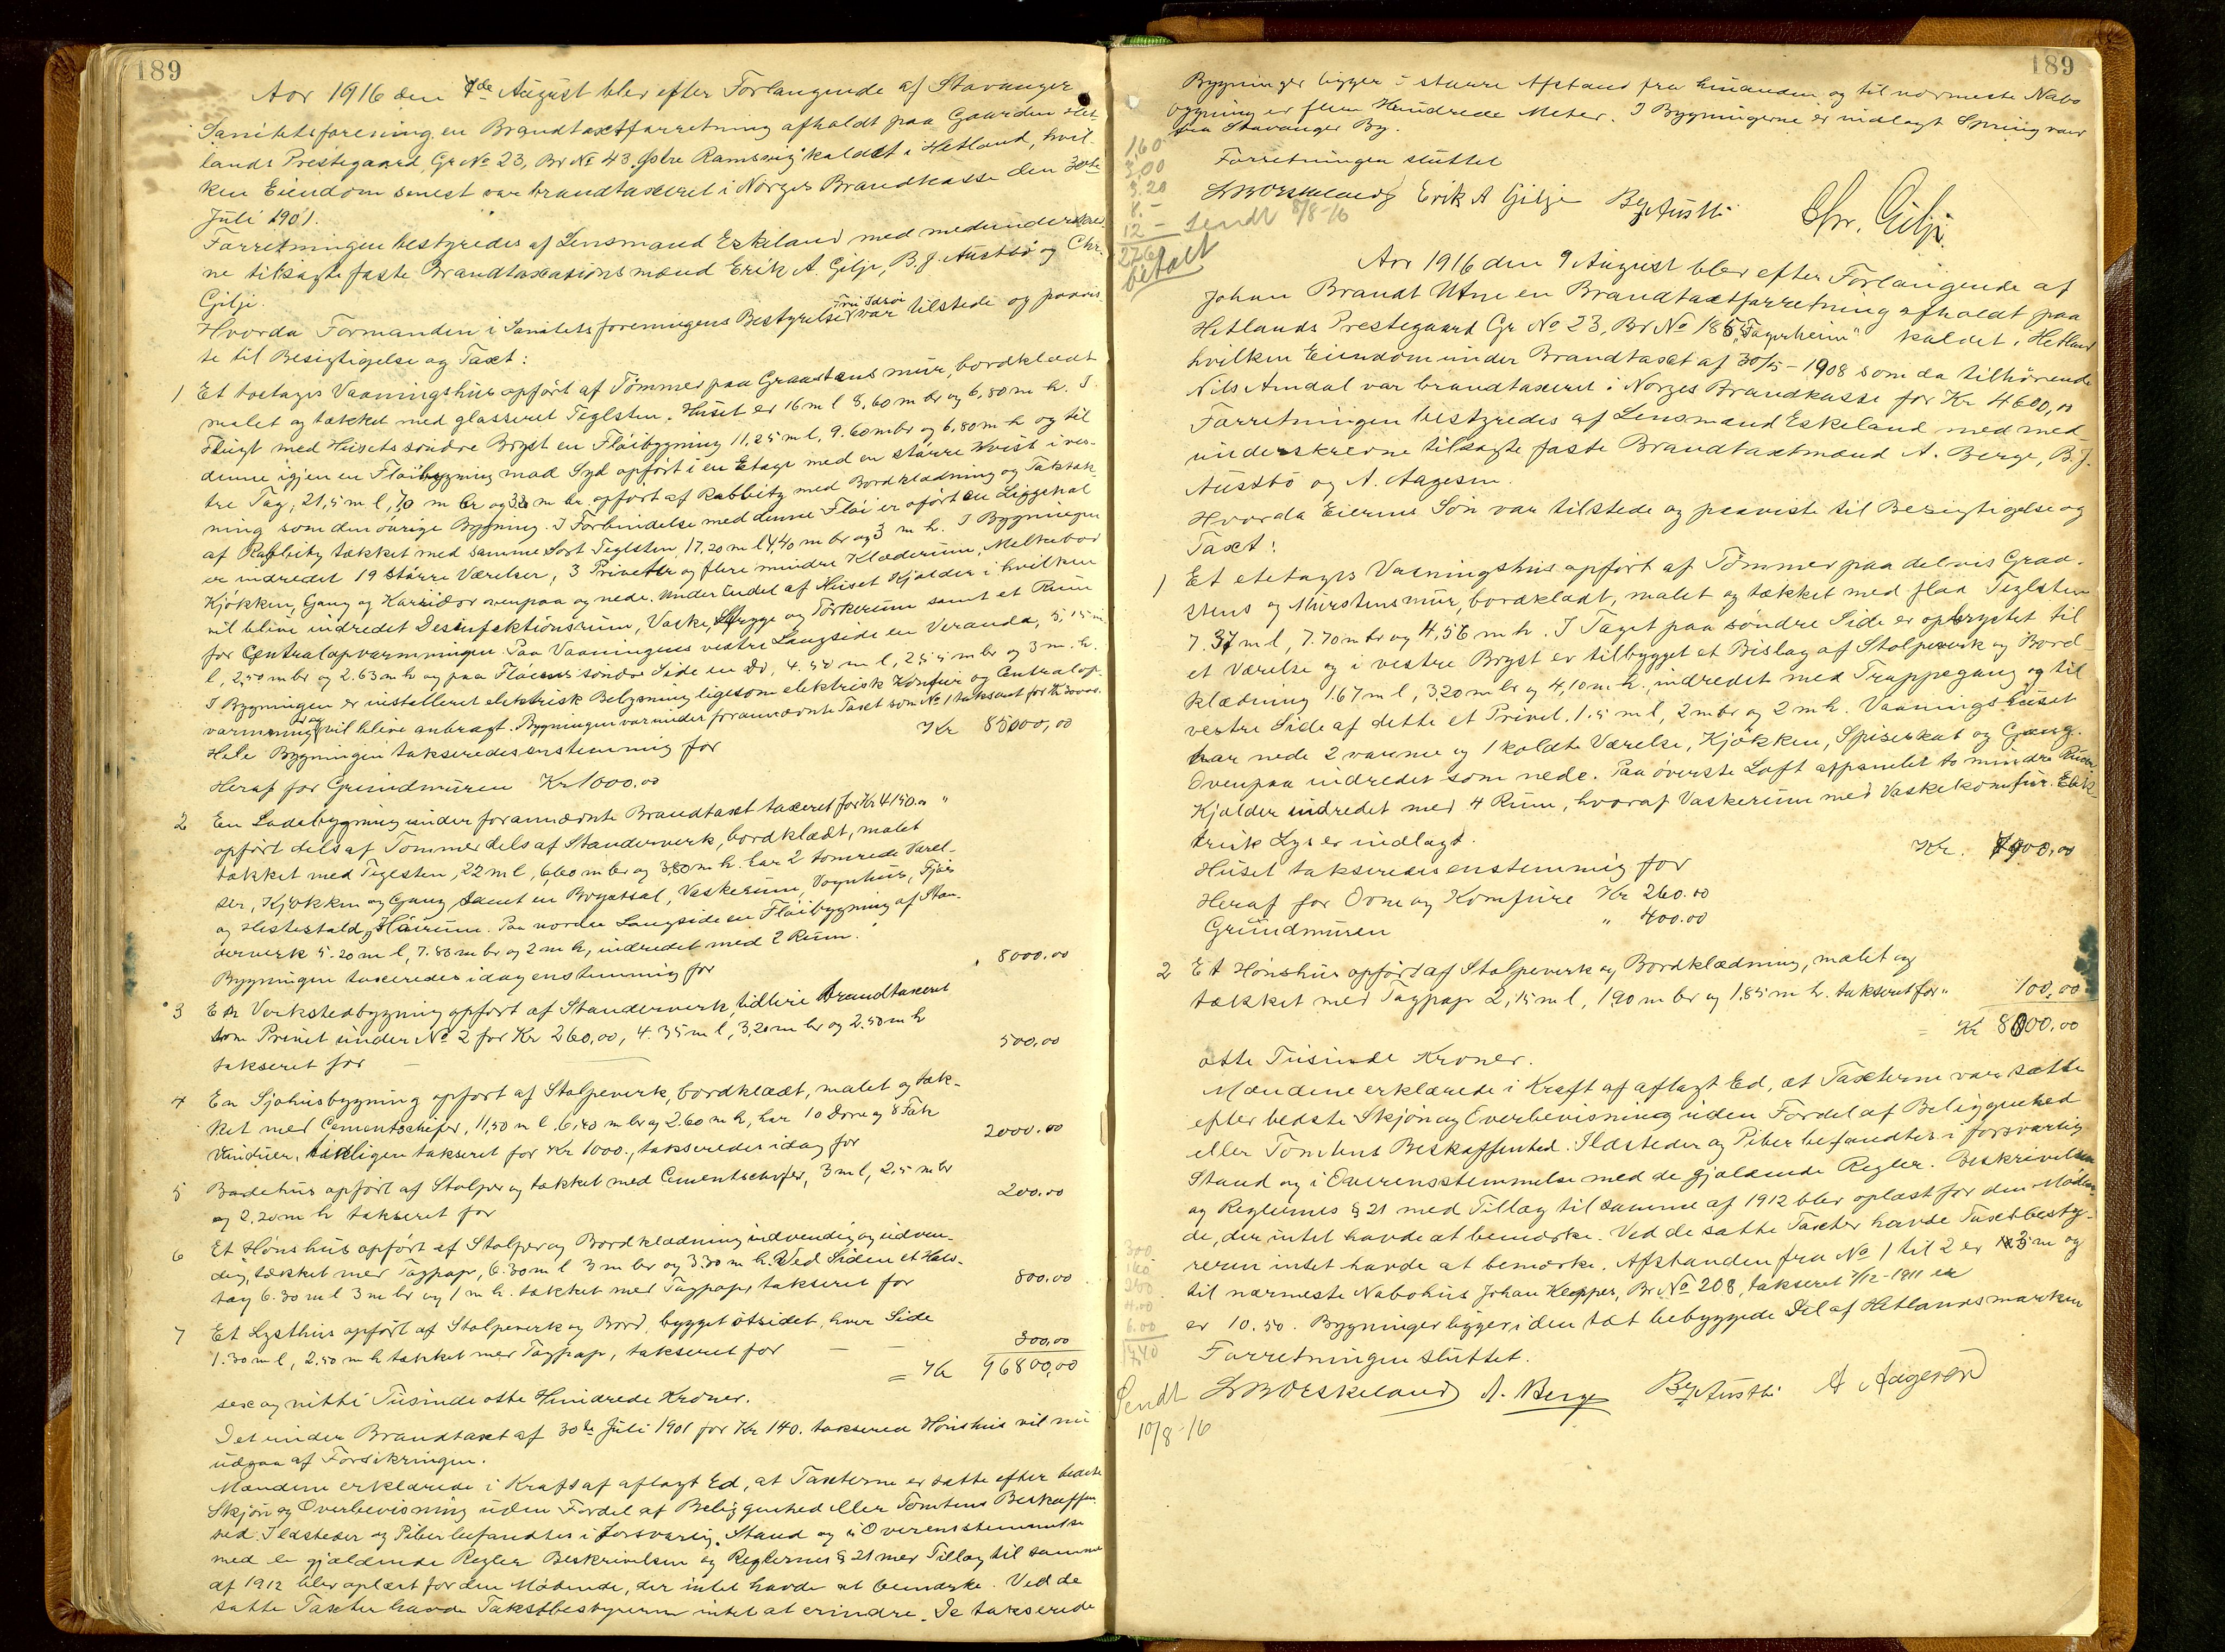 189
Aar 1916 den 7de August blev efter Forlangende af Stavanger
Sanitetsforening en Brandtaxtforretning afholdt paa Gaarden Het-
lands Prestegaard, Gr No 23, Br No 43 Østre Ramsvig kaldet i Hetland, hvil-
ken Eiendom senest var brandtaxeret i Norges Brandkasse den 30te
Juli 1901.
Forretningen bestyredes af Lensmand Eskeland med medunderskrev-
ne tilsagte faste Brandtaxasionsmænd Erik A. Gilje, B. J. Austbø og Chr.
Gilje.
Hvorda Formanden i Sanitetsforeningens Bestyrelse Fru Idsøe var tilstede og paavis-
te til Besigtigelse og Taxt:
1 Et toetages Vaaningshus opført af Tømmer paa Graastens mur, bordklædt
malet og tækket med glasseret Teglsten. Huset er 16 m l 8,60 m br og 6,80 m h. I
Flugt med Husets søndre Bryst en Fløibygning 11,25 m l, 9.60 m br og 6,80 m h og til
denne igjen en Fløibygning mod Syd opført i en Etage med en større Kvist i ves-
tre Tag, 21,5 m l, 7,0 m br og m h. opført af Rabbitz med Bordklædning og Taktæk
ning som den øvrige Bygning. I Forbindelse med denne Fløi er oført en Liggehal
af Rabbitz tækket med samme Sort Teglsten, 17,20 m l 4,40 m br og 3 m h. I Bygningen
er indredet 19 større Værelser, 3 Privetter og flere mindre Klæderum, Melkebod
Kjøkken, Gang og Karridor ovenpaa og nede. Under Endel af Huset Kjelder i hvilken
vil blive indredet Desinfektionsrum, Vaske, Stryge og Tørkerum samt et Rum
for Centralopvarmningen. Paa Vaaningens vestre Langside en Veranda, 5,15 m
l, 2,50 m br og 2.63 m h og paa Fløiens søndre Side en Do, 4.50 m l, 2,55 m br og 3 m. h.
I Bygningen er installeret elektrisk Belysning ligesom elektrisk Komfur og Centralop-
varmning og vil blive anbragt. Bygningen var under forannævnte Taxt som No 1 taksert for
Hele Bygningen takseredes enstemmig for Kr 85000,00
Heraf for Grundmuren Kr 1000.00
2 En Ladebygning under forannævnte Brandtaxt taxeret for Kr 4150.00 "
opført dels af Tømmer dels af Standerverk, bordklædt, malet
tækket med Tegesten, 22 m l, 6,60 m br og 3,80 m h. har 2 tomrede Værel-
ser, Kjøkken og Gang samt en Brygetsal, Vaskerum, Vognhus, Fjøs
og Hestestald, Hørum. Paa nordre Langside en Fløibygning af Stan-
derverk 5.20 m l, 7.80 m br og 2 m h, indredet med 2 Rum.
Bygningen taxeredes idag enstemmig for 8000.00
3 En Verkstedbygning opført af Standerverk, tidligere brandtaxeret
som Privet under No 2 for Kr 260,00, 4.35 m l, 3,20 m br og 2.50 m h
takseret for 500,00
4 En Sjøhusbygning opført af Stolpeverk, bordklædt, malet og tæk-
ket med Cementskifer, 11,50 m l. 6,40 m br og 2.60 m h, har 10 Døre og 8 Fak
Vinduer, tidligere takseret for Kr 1000., takseredes idag for 2000.00
5 Badehus opført af Stolper og tækket med Cementschifer, 3 m l, 2,5 m br
og 2,20 m h takseret for 200.00
6 Et Hønshus opført af Stolper og Bordklædning indvendig og udven-
dig, tækket med Tagpap, 6.30 m l 3 m br og 3.30 m h. Ved Siden et Halv-
tag 6.30 m l 3 m br og 1 m h. tækket med Tagpap, takseret for 800,00
7 Et Lysthus opført af Stolpeverk og Bord, bygget otsidet, hver Side
1.30 m l, 2.50 m h tækket med Tagpap, takseret for 300,00
= Kr 96800,00
sex og nitti Tusinde otte Hundrede Kroner.
Det under Brandtaxt af 30te Juli 1901 for Kr 140. takserede Hønshus vil nu
udgaa af Forsikringen.
Mændene erklærede i Kraft af aflagt Ed, at Taxterne er satte efter bedste
Skjøn og Overbevisning uden Fordel af Beliggenhed eller Tomtens Beskaffen-
hed. Ildsteder og Piber befandtes i forsvarlig Stand og i Overensstemmelse
med de gjældende Regler. Beskrivelsen og Reglernes § 21 med Tillæg til samme
af 1912 blev oplæst for den Mødende, der intet havde at bemærke. Ved de
satte Taxter havde Takstbestyreren intet at erindre. De takserede
189
Bygninger ligger i større Afstand fra hinanden og til nærmeste Nabo
bygning er flere Hundrede Meter. I Bygningerne er indlagt Springvand
fra Stavanger By.
Forretningen sluttet
Eskeland Erik A Gilje B J Austbø Chr. Gilje
1,60
3,00
3.20
8.-
12 - sendt 8/8-16
betalt
Aar 1916 den 9 August blev efter Forlangende af
Johan Brandt Utne en Brandtaxtforretning afholdt paa
Hetlands Prestegaard Gr No 23, Br No 185 "Fagerheim" kaldet i Hetland
hvilken Eiendom under Brandtaxt af 30/5 - 1908 som da tilhørende
Nils Amdal var brandtaxeret i Norges Brandkasse for Kr 4600,00
Forretningen bestyredes af Lensmand Eskeland med med-
underskrevne tilsagte faste Brandtaxtmænd A. Berge, B. J.
Austbø og A. Aagesen.
Hvorda Eierens Søn var tilstede og paaviste til Besigtigelse og
Taxt:
1 Et etetages Vaaningshus opført af Tømmer paa delvis Graa-
stens og Murstensmur, bordklædt, malet og tækket med flaa Teglsten
7.37 m l, 7.70 m br og 4,56 m h. I Taget paa søndre Side er opbrystet til
et Værelse og i vestre Bryst er tilbygget et Bislag af Stolpeverk og Bord-
klædning 1.67 m l, 3,20 m br og 4,10 m h., indredet med Trappegang og til
vestre Side af dette et Privet. 1.5 m l, 2 m br og 2 m h. Vaaningshuset
har nede 2 varme og 1 koldt Værelse, Kjøkken, Spiseskab og Gang.
Ovenpaa indredet som nede. Paa øverste Loft afpanelet to mindre Rum.
Kjelder indredet med 4 Rum, hvoraf Vaskerum med Vaskekomfur. Elek-
trisk Lys er indlagt.
Huset takseredes enstemmig for Kr. 7900,00
Heraf for Ovne og Komfure Kr 260.00
Grundmuren " 400.00
2 Et Hønshus opført af Stolpeverk og Bordklædning, malet og
tækket med Tagpap 2,15 m l, 1.90 m br og 1,85 m h. takseret for " 100,00
= Kr 8000,00
otte Tusinde Kroner.
Mændene erklærede i Kraft af aflagt Ed, at Taxterne var satte
efter bedste Skjøn og Overbevisning uden Fordel af Beliggenhed
eller Tomtens Beskaffenhed. Ildsteder og Piber befandtes i forsvarlig
Stand og i Overensstemmelse med de gjældende Regler. Beskrivelsen
og Reglernes § 21 med Tillæg til samme af 1912 blev oplæst for den Møden-
de, der intet havde at bemærke. Ved de satte Taxter havde Taxtbesty-
reren intet havde at bemærke. Afstanden fra No 1 til 2 er 3 m og
til nærmeste Nabohus Johan Klepper, Br No 208, takseret 7/12-1911 er
er 10.50. Bygninger ligger i den tæt bebyggede Del af Hetlandsmarken
Forretningen sluttet.
Eskeland A. Berge B J Austbø A Aagesen
Sendt
10/8-16